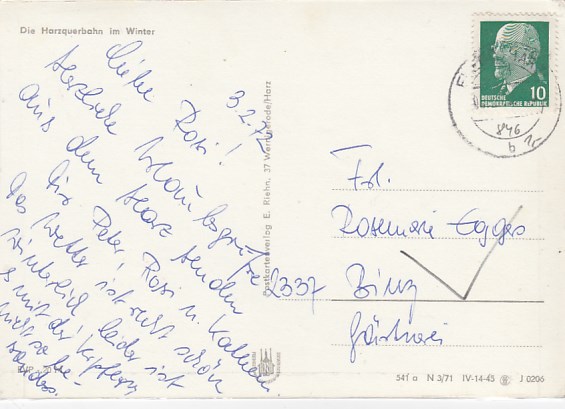 Die Harzquerbahn im Winter
3.2.72
Liebe Rosi!
Herzliche Urlaubsgrüße
aus dem Harz senden
Dir Peter, Rosi u.
Das Wetter ist recht schön
winterlich leider ist
es mit der
nicht so be-
sonders.
Postkartenverlag E. Riehn, 37 Wernigerode/Harz
DEUTSCHE
DEMOKRATISCHE REPUBLIK
10
846
b
Frl.
Rosemarie Eggers
2337 Binz
Gärtnerei
541 a N 3/71 IV-14-45 J 0206